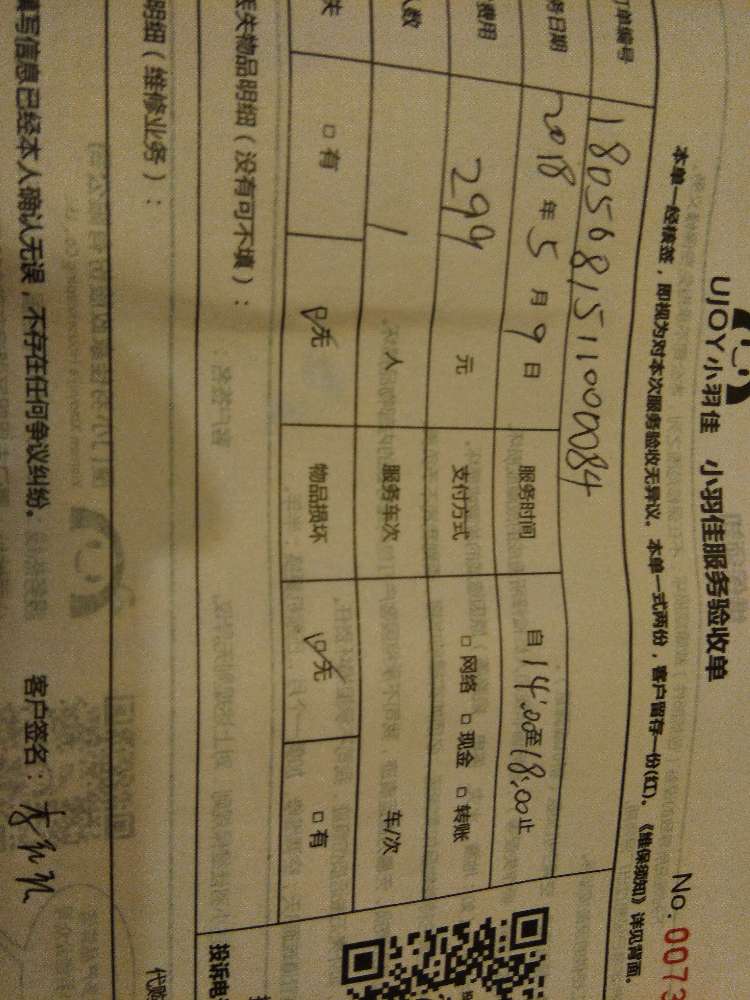 UJOY小羽佳 小羽佳服务验收单
No. 0073
本单一经核签，即视为对本次服务验收无异议。本单一式两份，客户留存一份(红)。《维保须知》详见背面。
订单编号 180568151100084
务日期 2018年5月9日 服务时间 自14:00至18:00止
费用 299元 支付方式 □网络 □现金 □转账
人数 1人 服务车次 车/次
失 □有 ☑无 物品损坏 ☑无 □有
丢失物品明细（没有可不填）：
明细（维修业务）：
投诉电
填写信息已经本人确认无误，不存在任何争议纠纷。 客户签名：